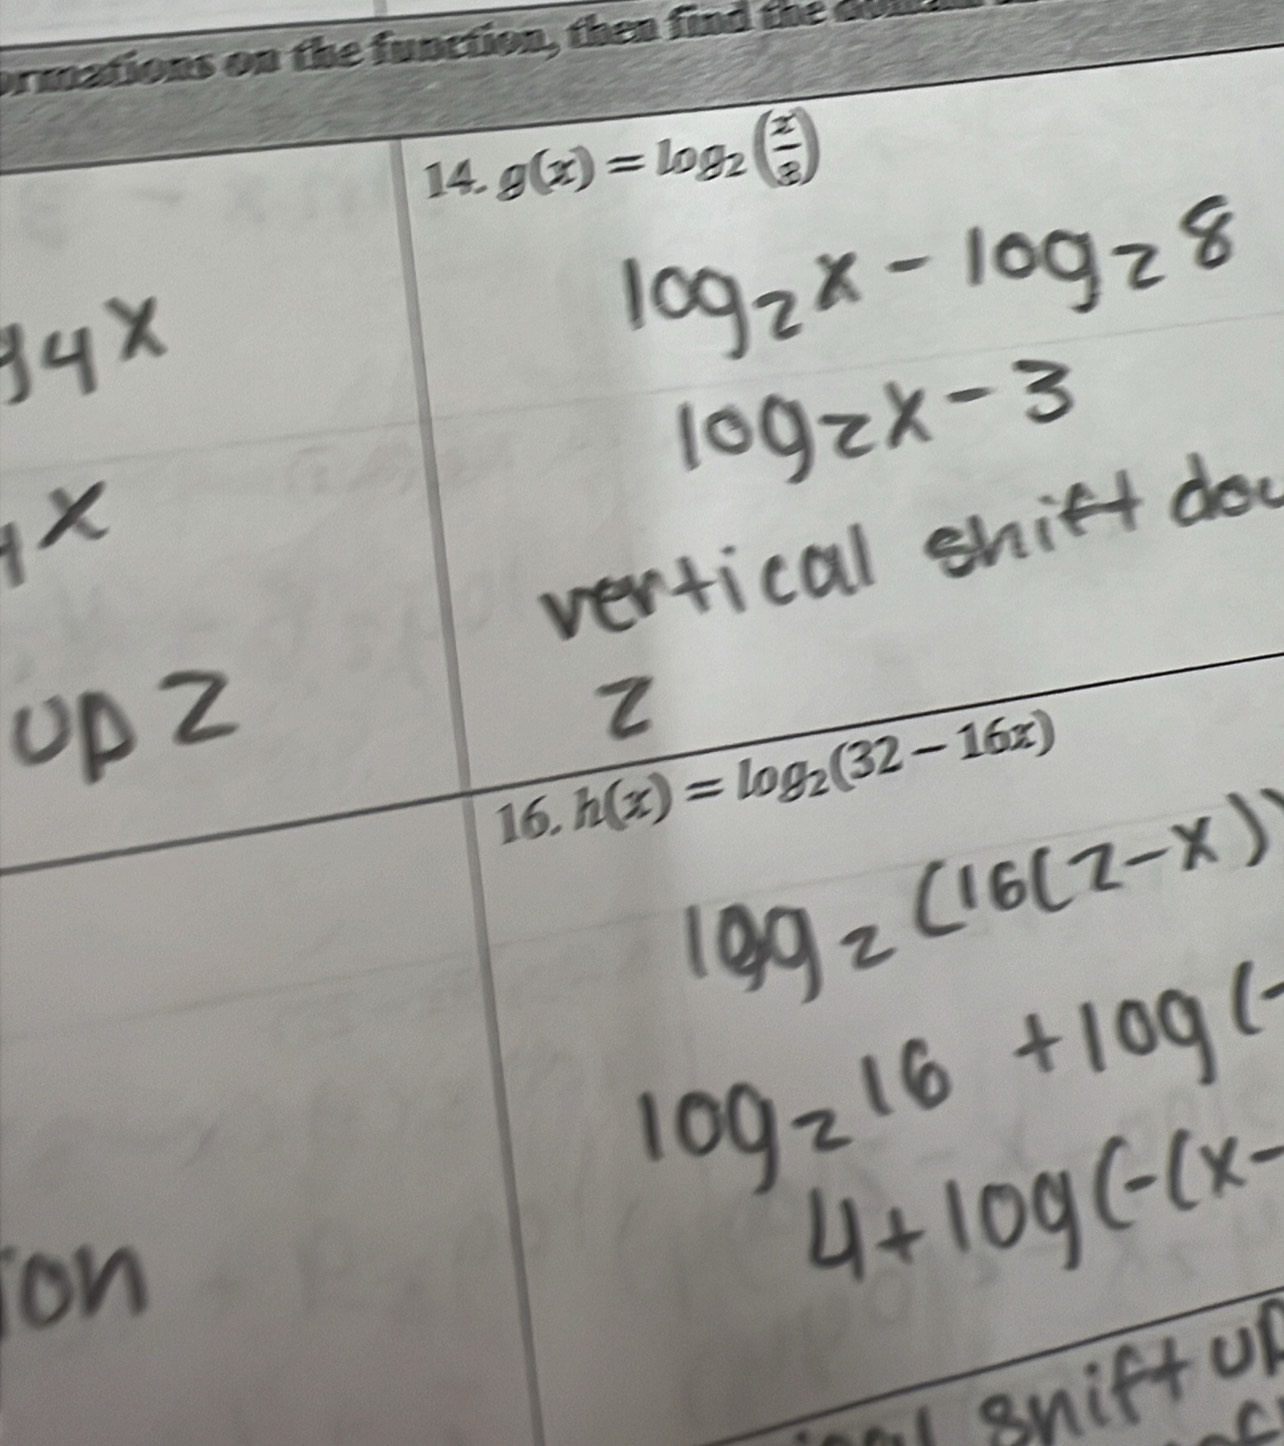 ormations on the function, then find the domain
14. g(x) = log₂(x/8)
log₂x - log₂8
g4x
log₂x - 3
4x
vertical shift dow
up 2
2
16. h(x) = log₂(32 - 16x)
log₂(16(2-x))
log₂16 + log(-
4+log(-(x-
ion
shift up